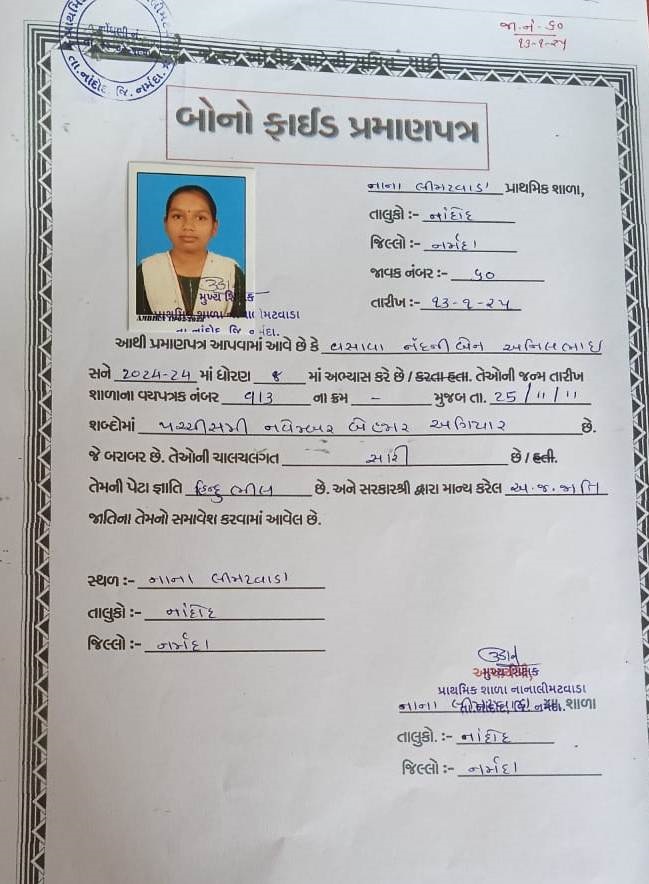 જા.નં. ૬૦
૧૩-૧-૨૫
તા. નાંદોદ જિ. નર્મદા.
બોનો ફાઈડ પ્રમાણપત્ર
નાના લીમટવાડા પ્રાથમિક શાળા,
તાલુકો :- નાંદોદ
જિલ્લો :- નર્મદા
જાવક નંબર :- ૬૦
તારીખ :- ૧૩-૧-૨૫
મુખ્ય શિક્ષક
આથી પ્રમાણપત્ર આપવામાં આવે છે કે વસાવા નંદની બેન અનિલભાઈ
સને ૨૦૨૪-૨૫ માં ધોરણ ૬ માં અભ્યાસ કરે છે / કરતા હતા. તેઓની જન્મ તારીખ
શાળાના વયપત્રક નંબર ૧/૩ ના ક્રમ - મુજબ તા. 25/11/11
શબ્દોમાં પચ્ચીસમી નવેમ્બર બે હજાર અગિયાર છે.
જે બરાબર છે. તેઓની ચાલચલંગત સારી છે / હતી.
તેમની પેટા જ્ઞાતિ હિન્દુ ભીલ છે. અને સરકારશ્રી દ્વારા માન્ય કરેલ અ.જ.જાતિ
જાતિના તેમનો સમાવેશ કરવામાં આવેલ છે.
સ્થળ :- નાના લીમટવાડા
તાલુકો :- નાંદોદ
જિલ્લો :- નર્મદા
મુખ્ય શિક્ષક
પ્રાથમિક શાળા નાનાલીમટવાડા
નાના શાળા
તાલુકો. :- નાંદોદ
જિલ્લો :- નર્મદા